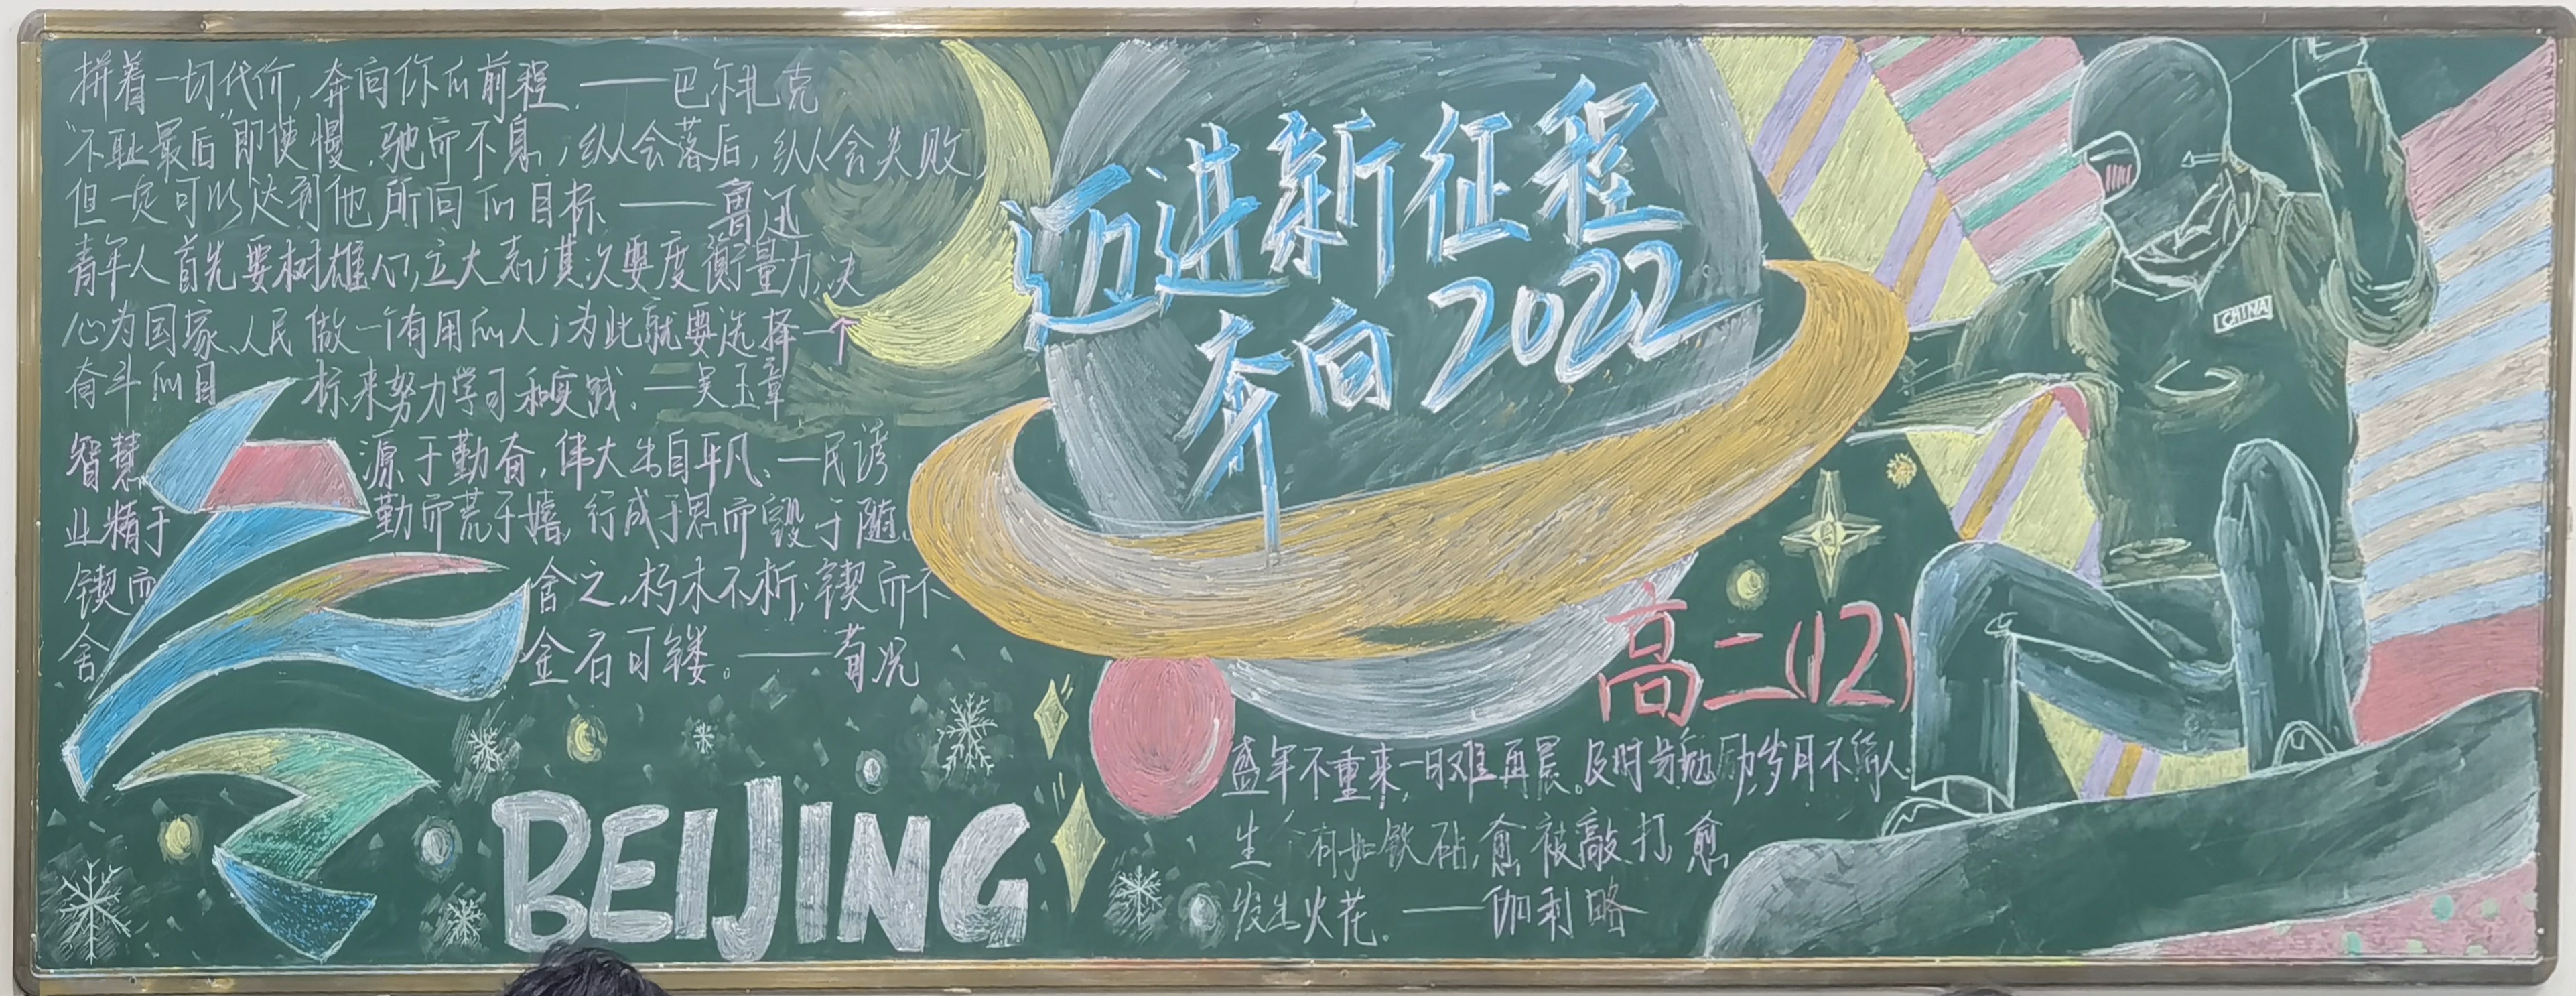 拼着一切代价，奔向你的前程．——巴尔扎克
“不耻最后”即使慢，驰而不息，纵会落后，纵会失败，
但一定可以达到他所向的目标．——鲁迅
青年人首先要树雄心，立大志；其次要度衡量力，决
心为国家、人民做一个有用的人；为此就要选择一个
奋斗的目标来努力学习和实践．—吴玉章
智慧源于勤奋，伟大出自平凡、—民谚
业精于勤而荒于嬉，行成于思而毁于随．
锲而舍之，朽木不折；锲而不
舍金石可镂。——荀况
迈进新征程
奔向2022
CHINA
高二(12)
BEIJING
盛年不重来，一日难再晨。及时当勉励，岁月不待人．
生 有如铁砧，愈被敲打，愈
发出火花．——伽利略